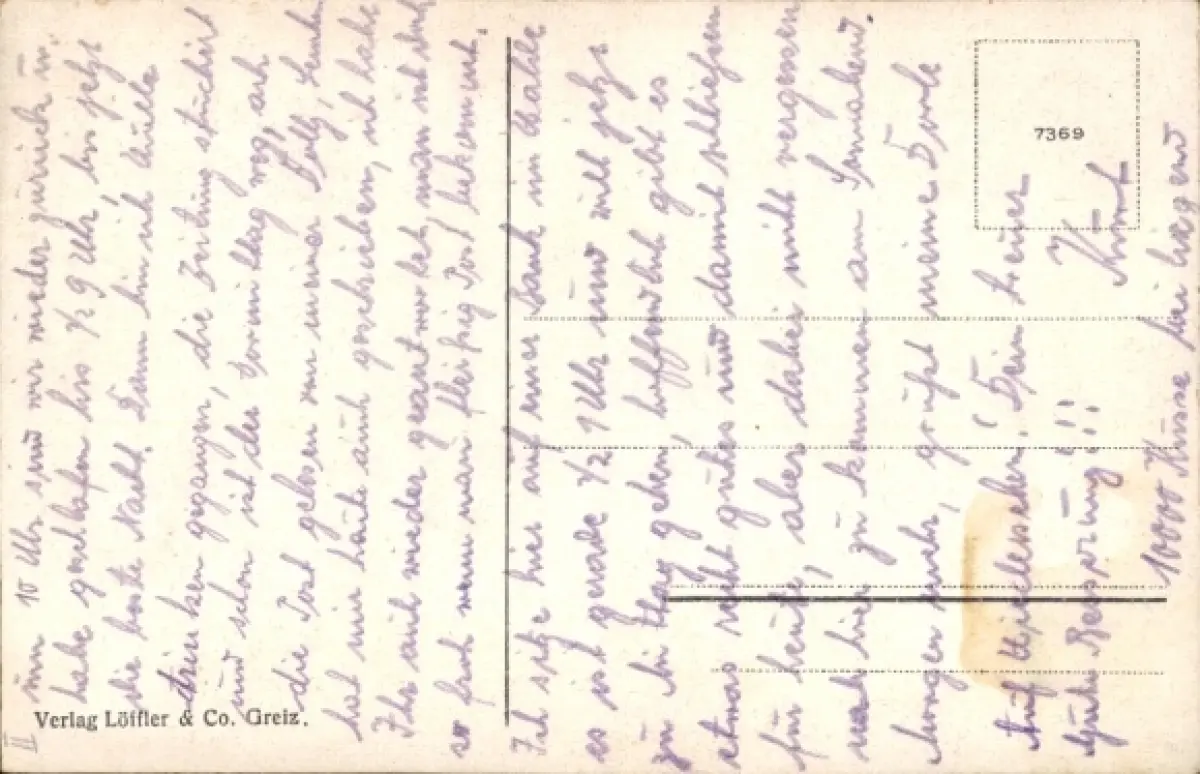 II
um 10 Uhr sind wir wieder zurück u.
habe geschlafen bis ½ 9 Uhr, bis jetzt
die beste Nacht. Dann bin ich
trinken gegangen, die Zeitung studiert
und schon ist der Vormittag weg auch
die Post gelesen von meiner
hat mir heute auch geschrieben, ich habe
Ihr auch wieder geantwortet, man
so fort wenn man fleißig Post bekommt.
Ich sitze hier auf einer Bank im
es ist gerade ½ 1 Uhr und will jetzt
zu Mittag gehen, hoffendlich gibt es
etwas recht gutes und damit schliesen
für heute, aber dabei nicht vergessen
nach hier zu kommen am Sonnabend.
Morgen mehr, grüßt meine
Auf Wiedersehen! Dein treuer
Kurt
Gute Besserung!!
1000 Küsse bei liegend
7369
Verlag Löffler & Co. Greiz.